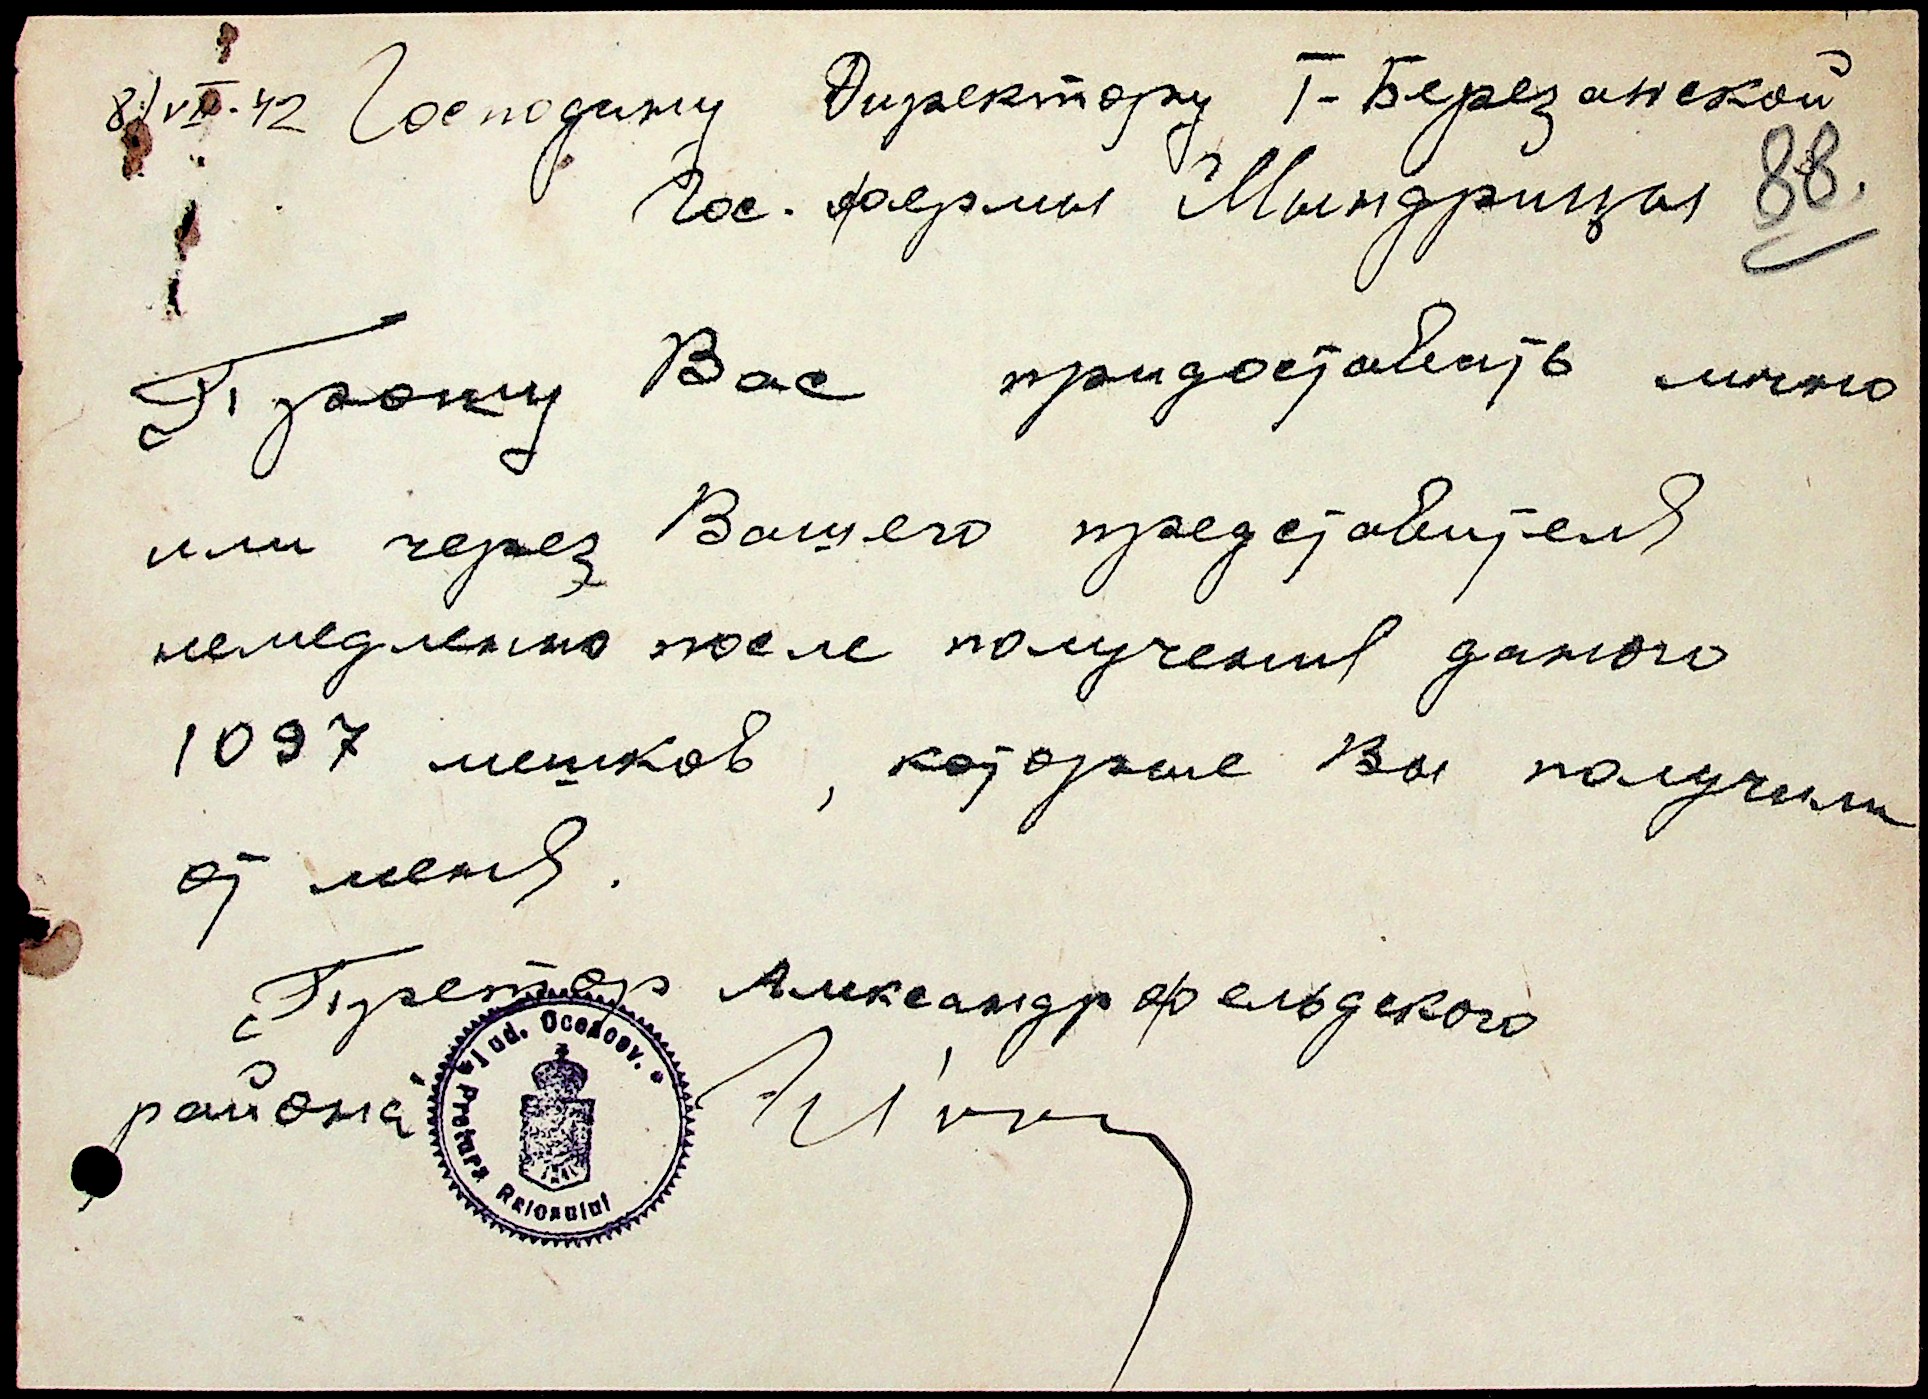 8/VII-42 Господину Директору Т-Березанской
Гос. фермы Мындрицы 88.
Прошу Вас придоставить лично
или через Вашего представителя
немедленно после получения даного
1097 мешков, которые Вы получили
от меня.
Претор Александрфельдского
района
Jud. Oceacov. * Pretura Raionului *